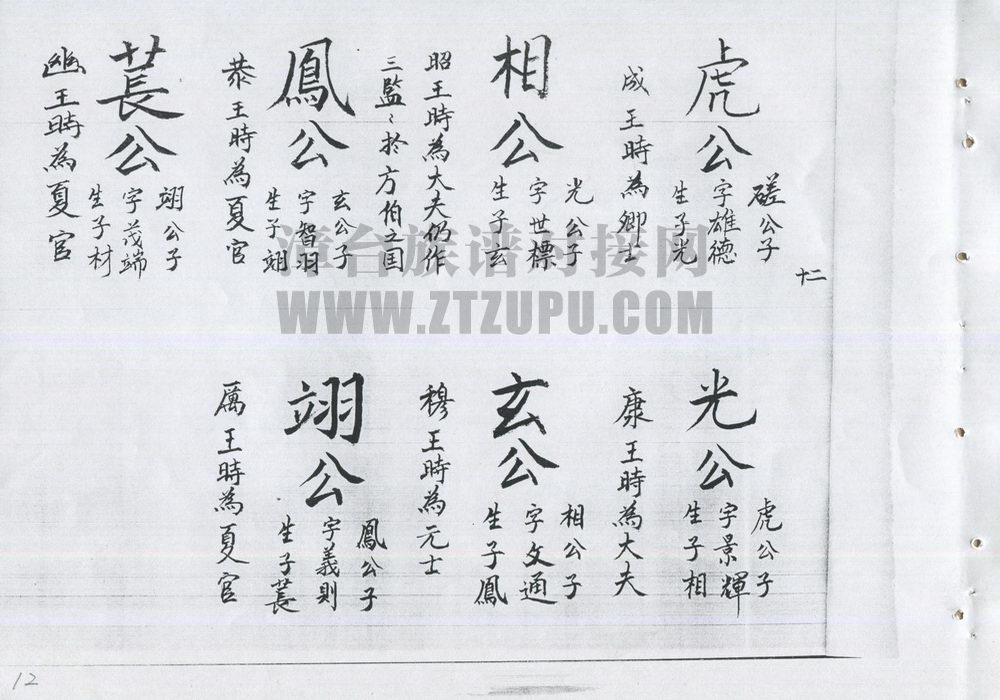 十二
虎公
磋公子
字雄德
生子光
成王時為卿士
光公
虎公子
字景輝
生子相
康王時為大夫
相公
光公子
字世標
生子玄
昭王時為大夫仍作
三監〻於方伯之国
玄公
相公子
字文通
生子鳳
穆王時為元士
鳳公
玄公子
字智羽
生子翊
恭王時為夏官
翊公
鳳公子
字義則
生子萇
厲王時為夏官
萇公
翊公子
字茂端
生子材
幽王時為夏官
漳台族谱对接网
WWW.ZTZUPU.COM
12